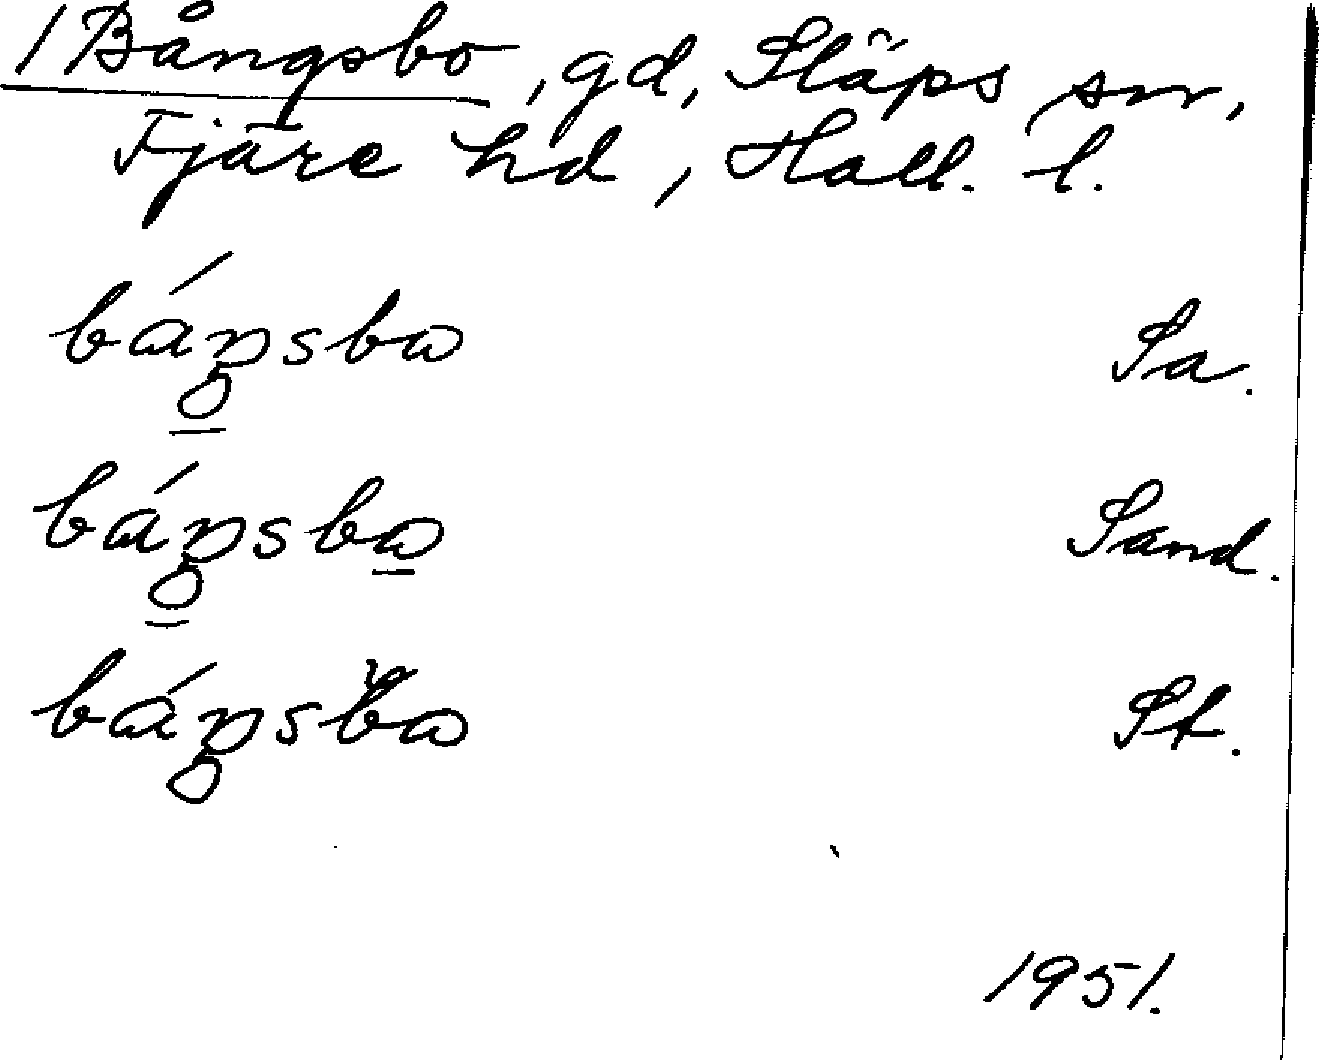 /Bångsbo, gd, Släps sn,
Fjäre hd, Hall. l.
báŋsbo Sa.
báŋsbo Sand.
báŋsbo St.
1951.